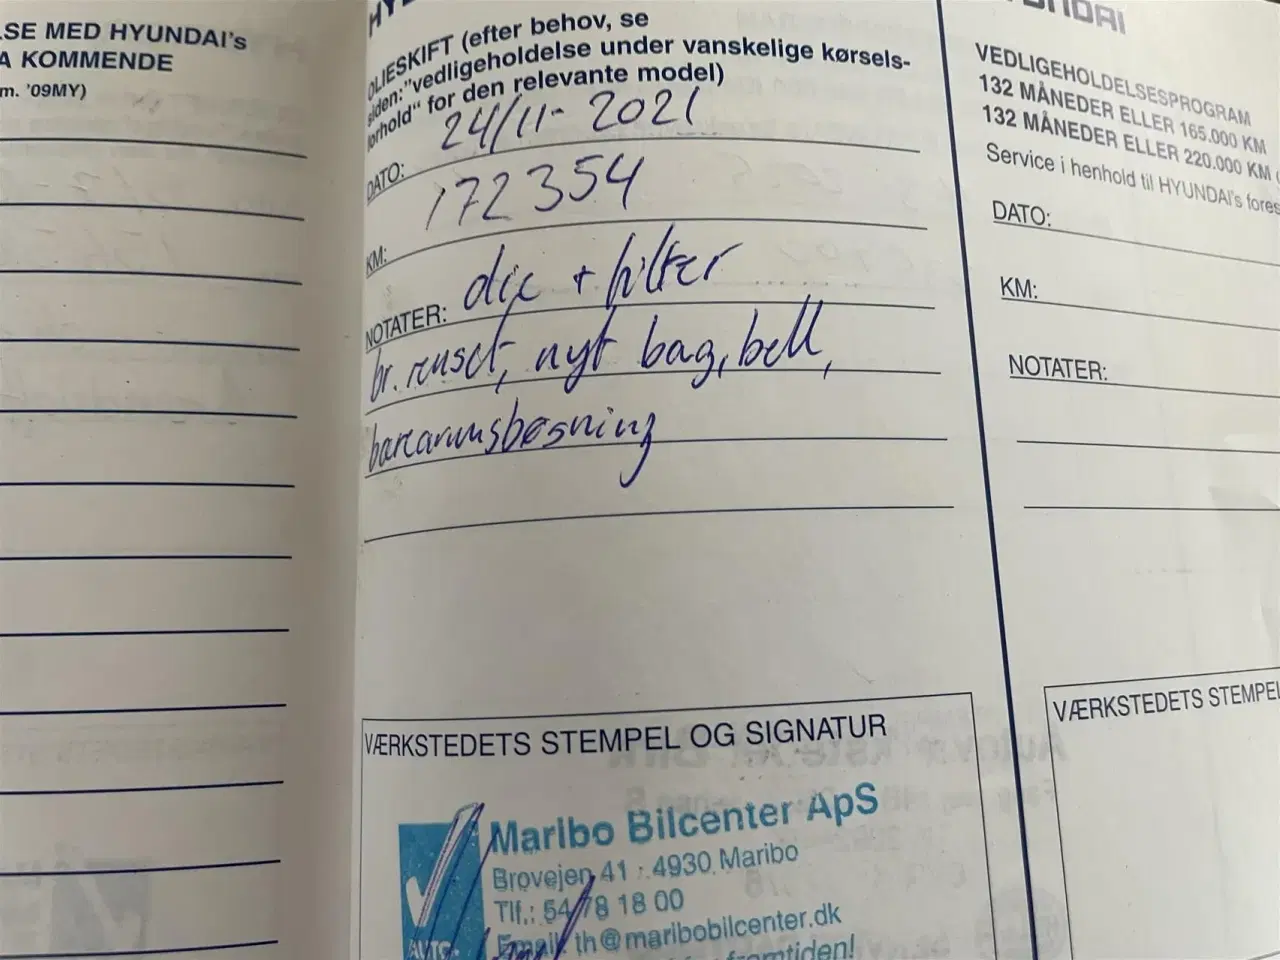 LSE MED HYUNDAI's
A KOMMENDE
m. '09MY)
OLIESKIFT (efter behov, se
siden:"vedligeholdelse under vanskelige kørsels-
forhold" for den relevante model)
DATO: 24/11- 2021
KM: 172354
NOTATER: olie + filter
br. renset, nyt bag, bell,
bærearmsbøsning
VÆRKSTEDETS STEMPEL OG SIGNATUR
Maribo Bilcenter ApS
Brovejen 41 · 4930 Maribo
Tlf.: 54 78 18 00
Email: th@maribobilcenter.dk
fremtiden!
AUTO
HYUNDAI
VEDLIGEHOLDELSESPROGRAM
132 MÅNEDER ELLER 165.000 KM
132 MÅNEDER ELLER 220.000 KM (
Service i henhold til HYUNDAI's fores
DATO:
KM:
NOTATER:
VÆRKSTEDETS STEMPEL